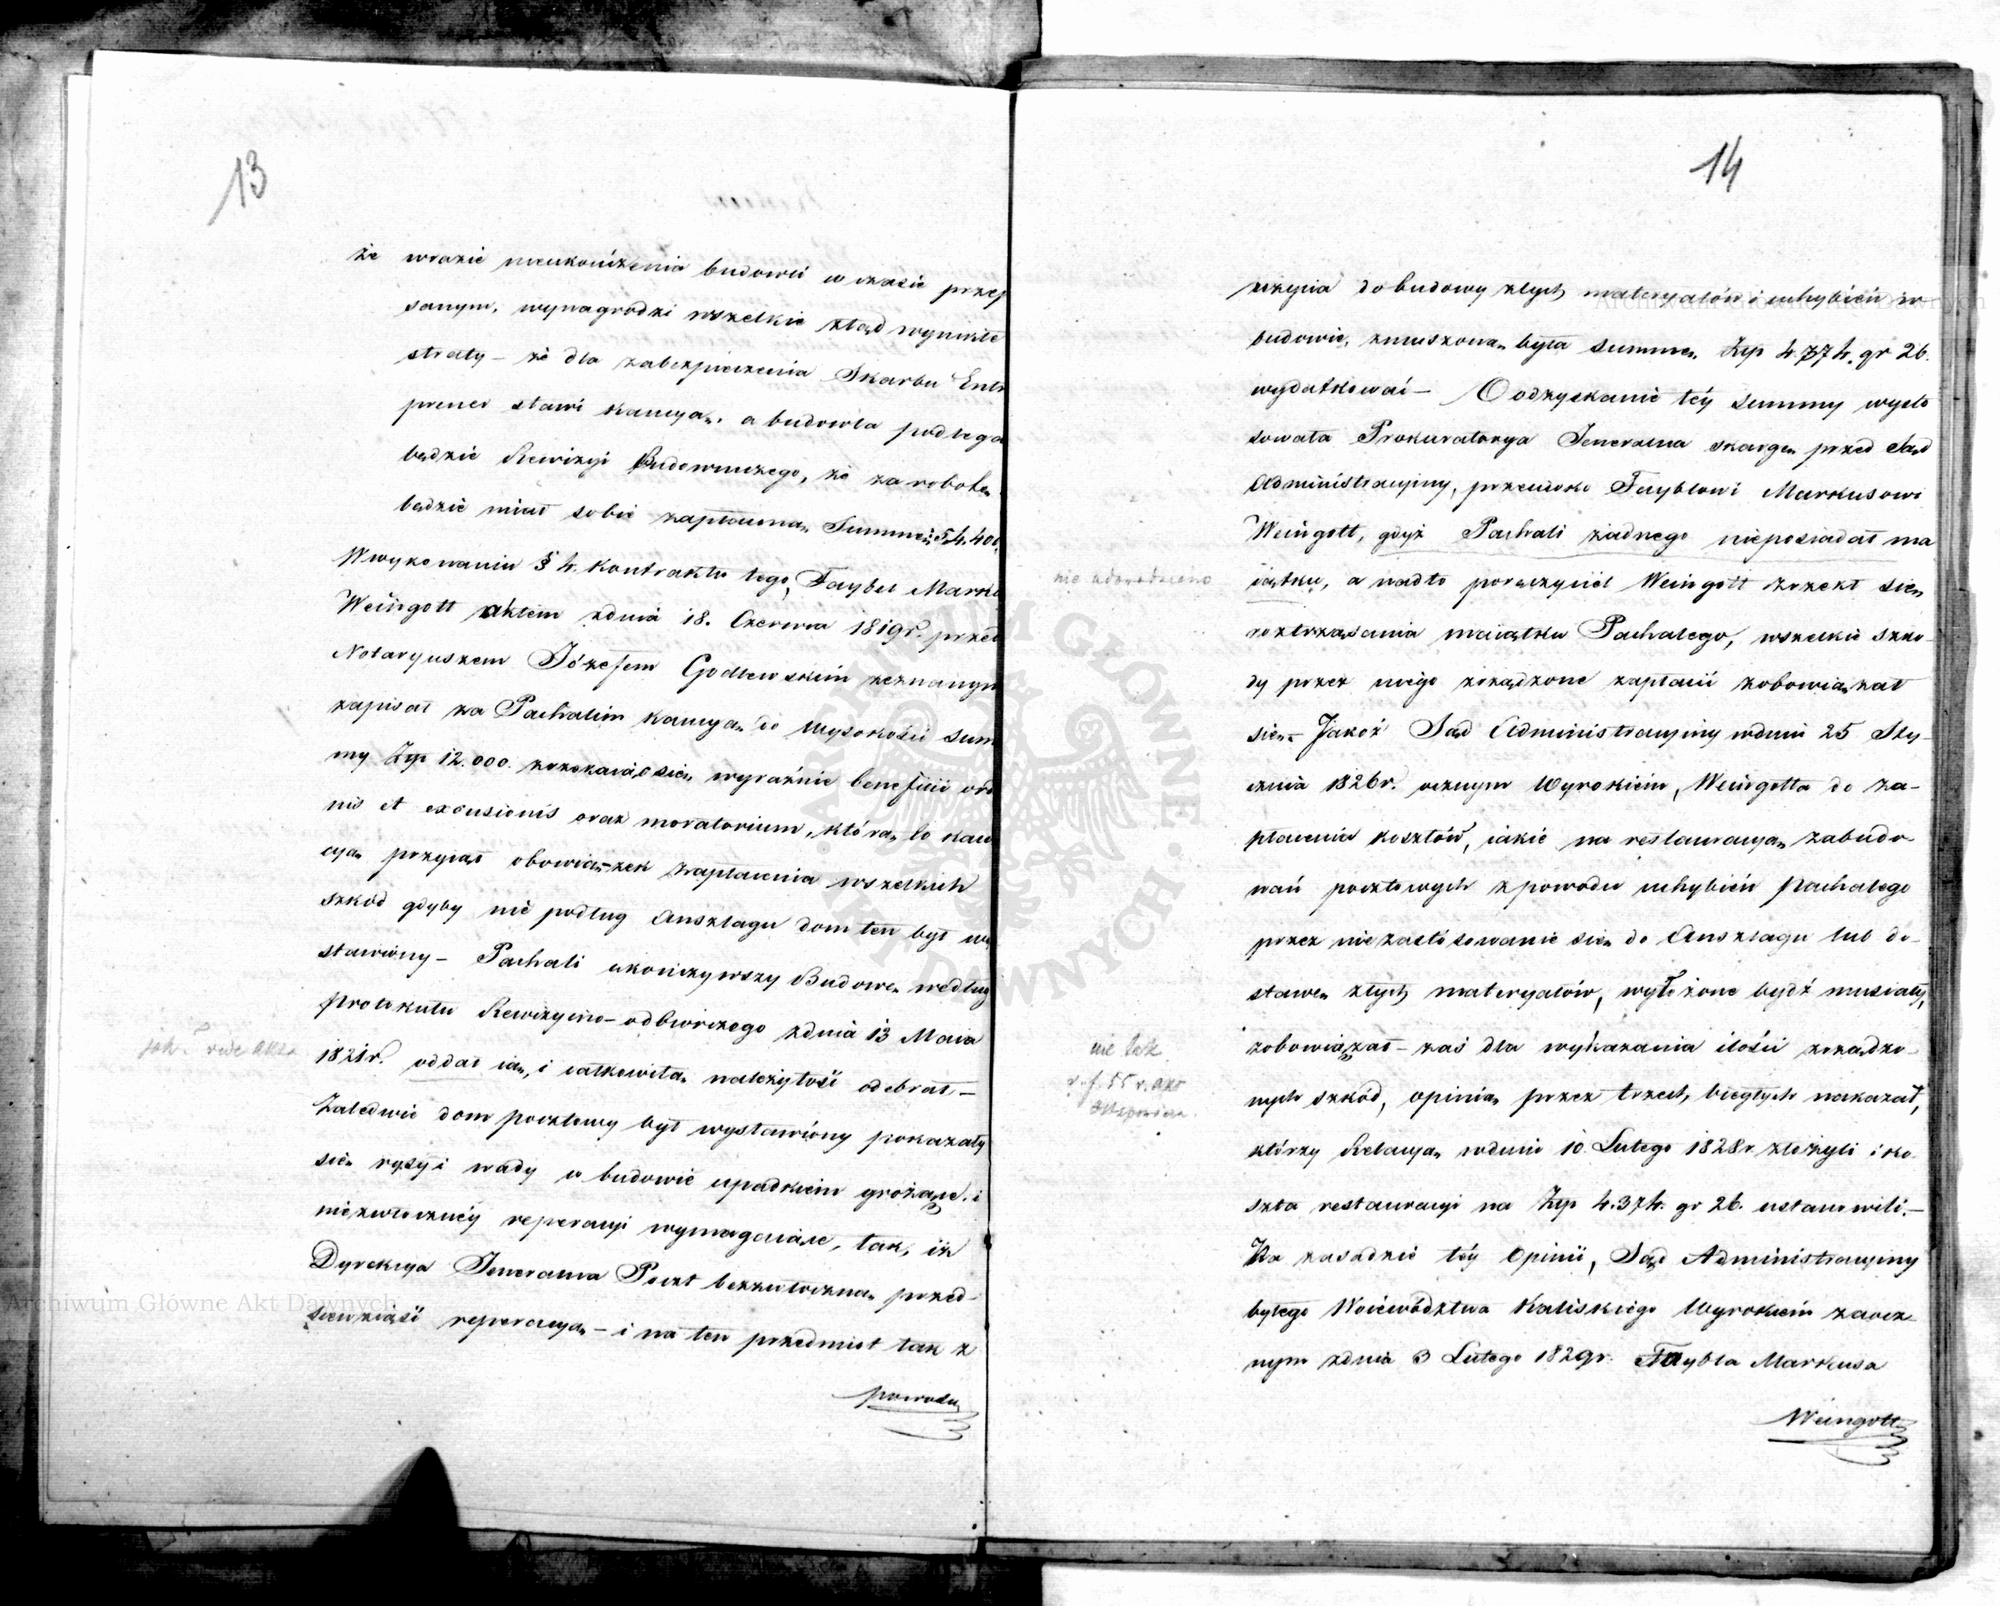 13
że wrazie nieukończenia budowli w czasie przep
sanym, wynagrodzi wszelkie ztąd wynikłe
straty – że dla zabezpieczenia Skarbu Entr
prener stawi kaucyą, a budowla podlega
będzie Rewizyi Budowniczego, że za robotę
będzie miał sobie zapłaconą Summę
W wykonaniu § 4. Kontraktu tego, Faybel Marku
Weingott aktem zdnia 18. Czerwca 1819r. przed
Notaryuszem Józefem Godlewskim zeznanym
zapisał za Pachalim kaucyą do wysokości sum
my Złp 12.000. zrzekaiąc się wyraźnie beneficii ordi
nis et excusionis oraz moratorium, którą to kau
cyą przyiął obowiązek zapłacenia wszelkich
szkód gdyby nie podług Anszlagu dom ten był wy
stawiony – Pachali ukończywszy Budowę według
protokułu Rewizyino-odbiorczego zdnia 13 Maia
1821r. oddał ią, i całkowitą należytość odebrał, –
Zaledwie dom pocztowy był wystawiony pokazały
się rysy i wady w budowie upadkiem grożące, i
niezwłoczney reperacyi wymagaiące, tak, iż
Dyrekcya Jeneralna Poczt bezzwłoczną przed-
siewziąść reperacyą – i na ten przedmiot tak z
powodu
14
użycia do budowy złych materyałów i uchybień w
budowie, zmuszoną była summę Złp 4.374. gr 26.
wydatkować – O odzyskanie téy summy wysto
sowała Prokuratorya Jeneralna skargę przed Sąd
Administracyiny, przeciwko Fayblowi Markusowi
Weingott, gdyż Pachali żadnego nieposiadał ma
nie udowodniono
iątku, a nadto poręczyciel Weingott zrzekł się
roztrząsania maiątku Pachalego, wszelkie szko-
dy przez niego zrządzone zapłacić zobowiązał
się – Jakoż Sąd Administracyiny wdniu 25 Sty-
cznia 1826r. ocznym Wyrokiem, Weingotta do za-
płacenia kosztów, iakie na restauracyą zabudo-
wań pocztowych z powodu uchybień Pachalego
przez niezastósowanie się do Anszlagu lub do-
stawę złych materyałów, wyłożone bydź musiały,
nie tak
zobowiązał – zaś dla wykazania ilości zrządzo-
v. f. 55 v. akt
nych szkód, opinią przez trzech biegłych nakazał,
którzy Relacyą wdniu 10 Lutego 1828r. złożyli i ko-
szta restauracyi na Złp 4.374. gr 26. ustanowili. –
Na zasadzie téy Opinii, Sąd Administracyiny
byłego Woiewództwa Kaliskiego Wyrokiem zaocz-
nym zdnia 3 Lutego 1829r. Faybla Markusa
Weingott
Archiwum Główne Akt Dawnych
Archiwum Główne Akt Dawnych
ARCHIWUM GŁÓWNE AKT DAWNYCH